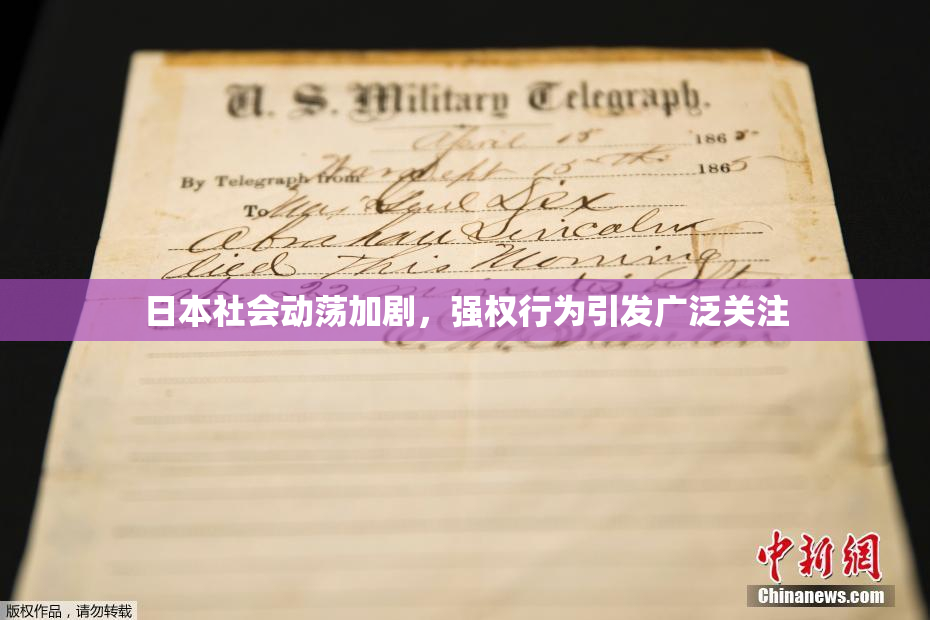 U. S. Military Telegraph.
April 15 1865
By Telegraph from Washington 15th 1865
To Maj Genl Dix
Abraham Lincoln
died This Morning
at 22 minutes after
日本社会动荡加剧，强权行为引发广泛关注
E. M. Stanton
中新网
Chinanews.com
版权作品，请勿转载